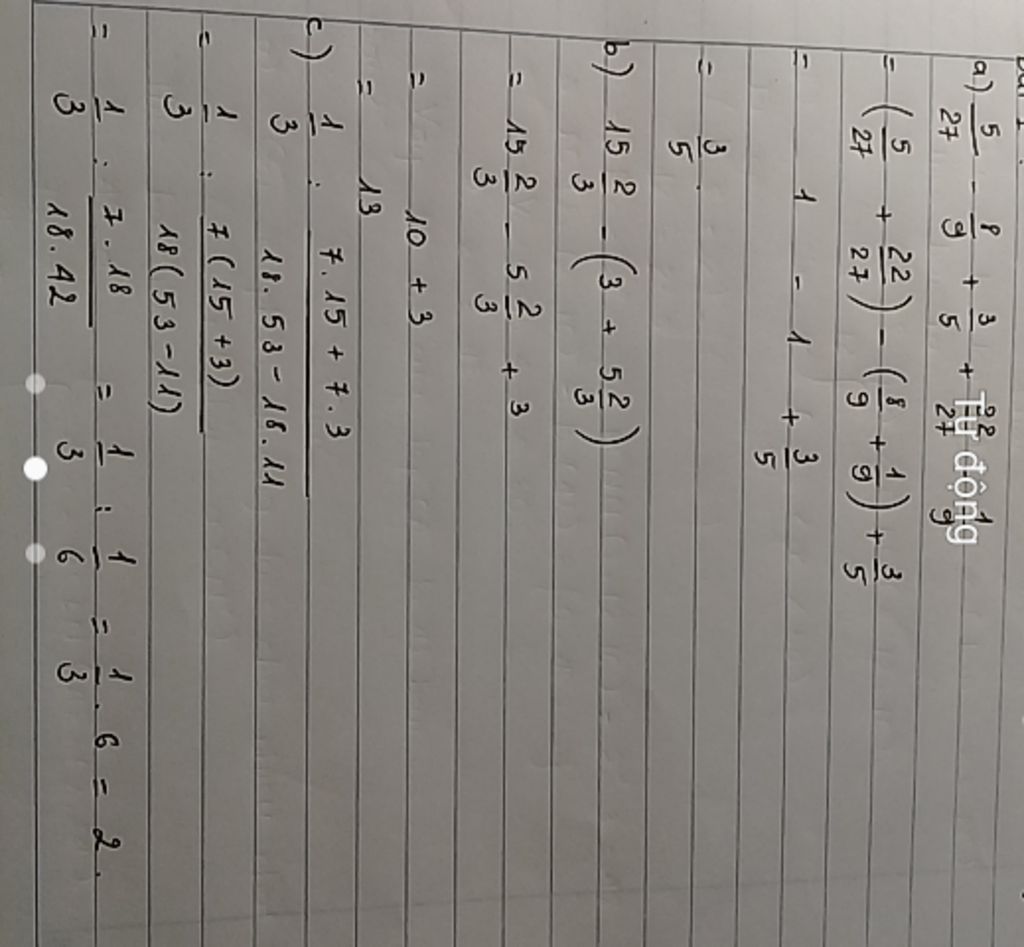 Bài 1:
a) 5/27 - 8/9 + 3/5 + 22/27 1/9
Tự động
= (5/27 + 22/27) - (8/9 + 1/9) + 3/5
= 1 - 1 + 3/5
= 3/5.
b) 15 2/3 - (3 + 5 2/3)
= 15 2/3 - 5 2/3 + 3
= 10 + 3
= 13
c) 1/3 : (7.15 + 7.3)/(18.53 - 18.11)
= 1/3 : 7(15 + 3)/18(53 - 11)
= 1/3 : 7.18/18.42 = 1/3 : 1/6 = 1/3 . 6 = 2.